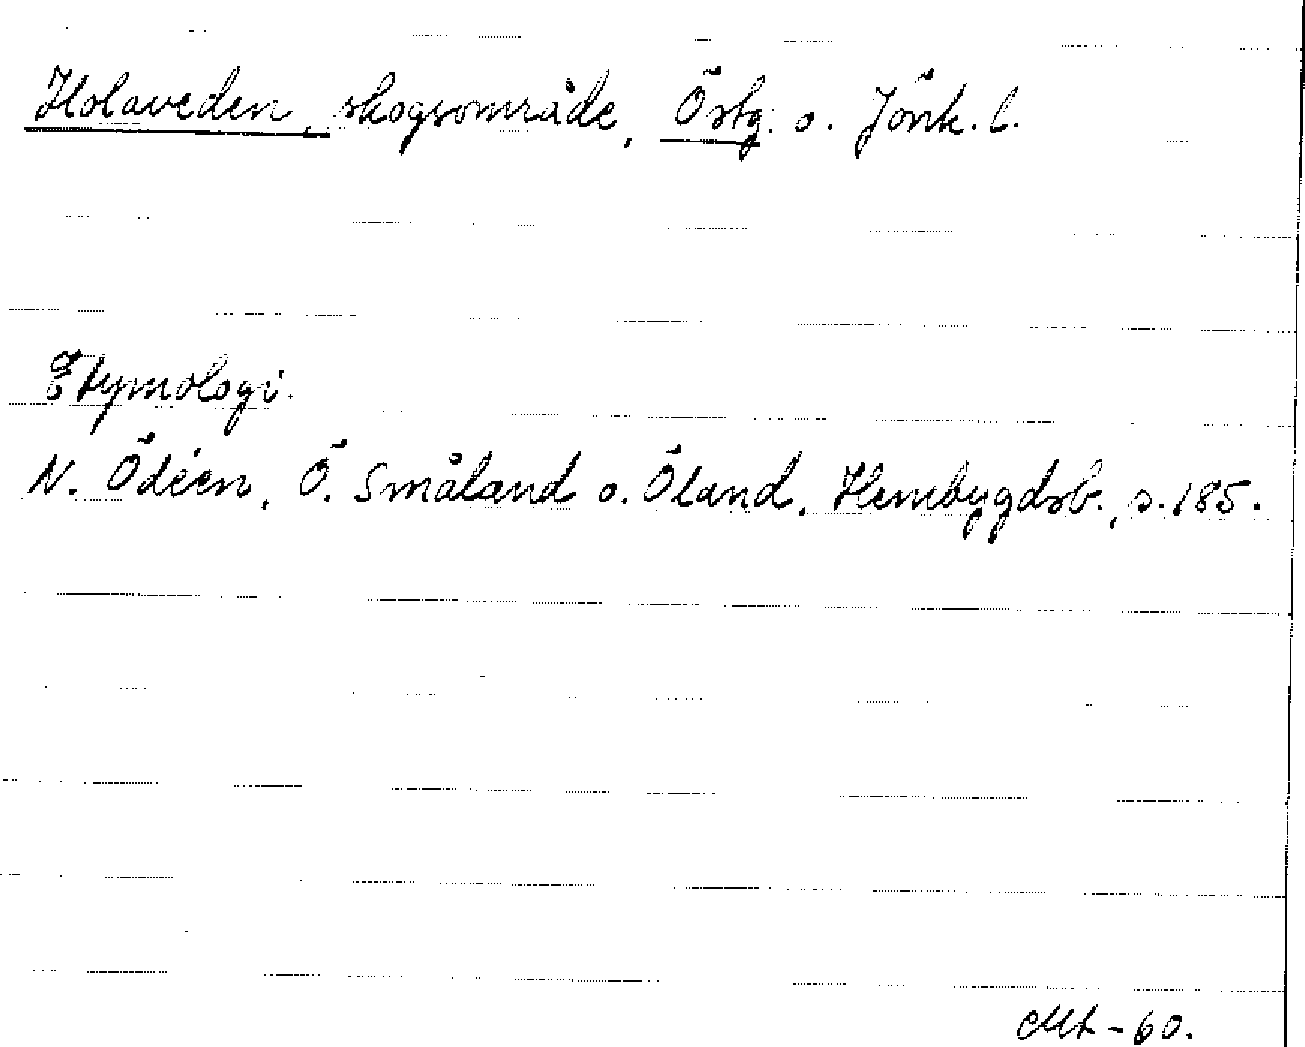 Holaveden, skogsområde, Östg. o. Jönk. l.
Etymologi.
N. Ödéen, Ö. Småland o. Öland, Hembygdsb., s. 185.
-60.